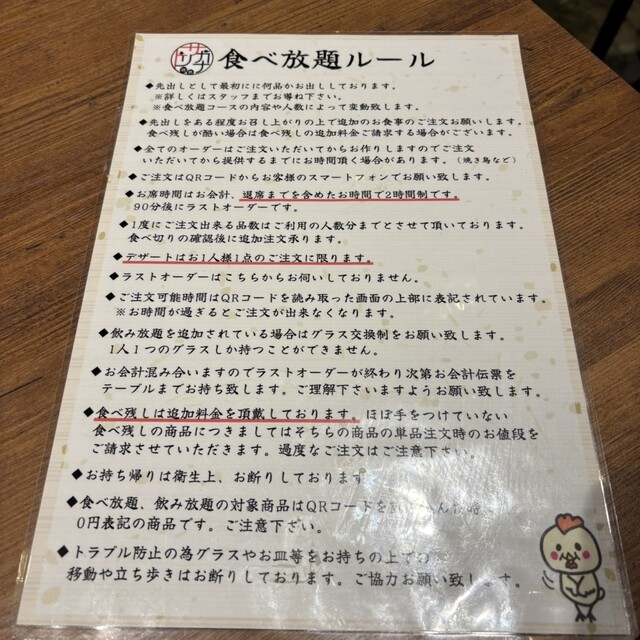 食べ放題ルール
◆先出しとして最初にに何品かお出ししております。
※詳しくはスタッフまでお尋ね下さい。
※食べ放題コースの内容や人数によって変動致します。
◆先出しをある程度お召し上がりの上で追加のお食事のご注文お願いします。
食べ残しが酷い場合は食べ残しの追加料金ご請求する場合がございます。
◆全てのオーダーはご注文いただいてからお作りしますのでご注文
いただいてから提供するまでにお時間頂く場合があります。（焼き鳥など）
◆ご注文はQRコードからお客様のスマートフォンでお願い致します。
◆お席時間はお会計、退席までを含めたお時間で2時間制です。
90分後にラストオーダーです。
◆1度にご注文出来る品数はご利用の人数分までとさせて頂いております。
食べ切りの確認後に追加注文承ります。
◆デザートはお1人様1点のご注文に限ります。
◆ラストオーダーはこちらからお伺いしておりません。
◆ご注文可能時間はQRコードを読み取った画面の上部に表記されています。
※お時間が過ぎるとご注文が出来なくなります。
◆飲み放題を追加されている場合はグラス交換制をお願い致します。
1人1つのグラスしか持つことができません。
◆お会計混み合いますのでラストオーダーが終わり次第お会計伝票を
テーブルまでお持ち致します。ご理解下さいますようお願い致します。
◆食べ残しは追加料金を頂戴しております。ほぼ手をつけていない
食べ残しの商品につきましてはそちらの商品の単品注文時のお値段を
ご請求させていただきます。過度なご注文はご注意下さい。
◆お持ち帰りは衛生上、お断りしております
◆食べ放題、飲み放題の対象商品はQRコードを
0円表記の商品です。ご注意下さい。
◆トラブル防止の為グラスやお皿等をお持ちの上での
移動や立ち歩きはお断りしております。ご協力お願い致します。